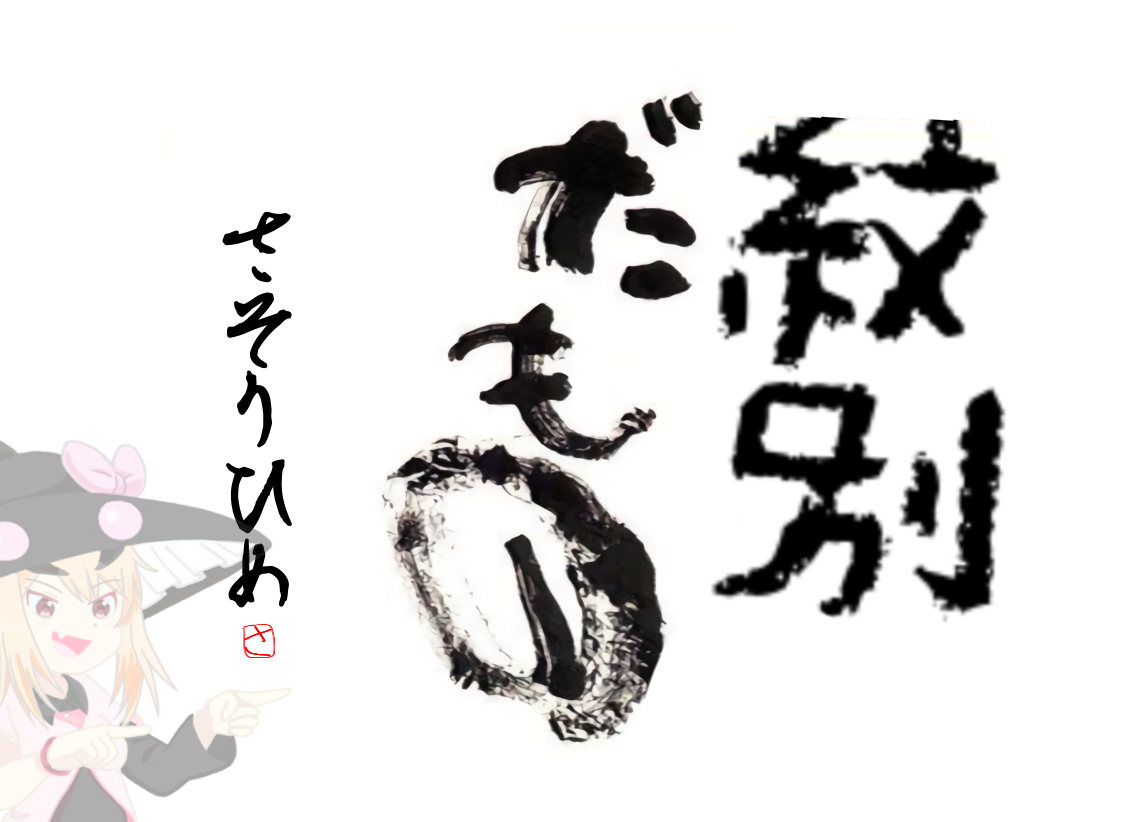 紋別
だもの
さそりひめ
さ